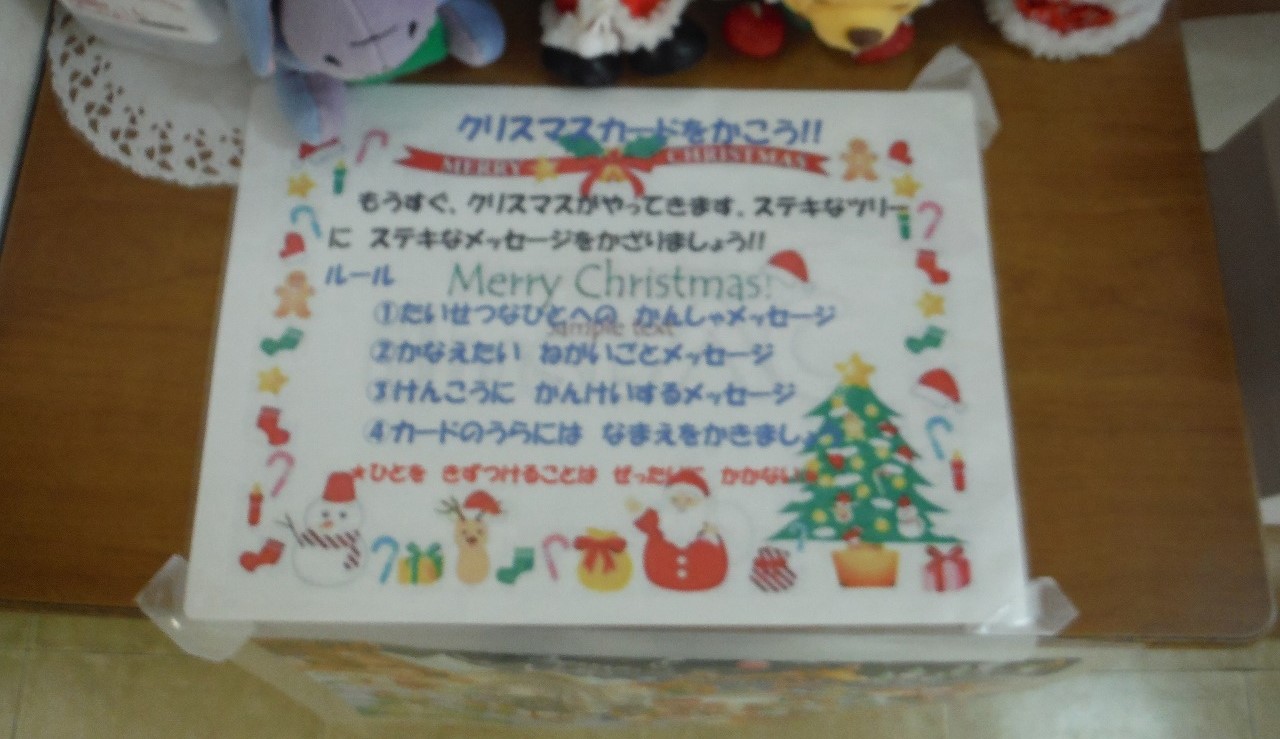 クリスマスカードをかこう!!
MERRY CHRISTMAS
もうすぐ、クリスマスがやってきます。ステキなツリー
に ステキなメッセージをかざりましょう!!
ルール
Merry Christmas!
①たいせつなひとへの かんしゃメッセージ
sample text
②かなえたい ねがいごとメッセージ
③けんこうに かんけいするメッセージ
④カードのうらには なまえをかきまし
★ひとを きずつけることは ぜったいに かかない